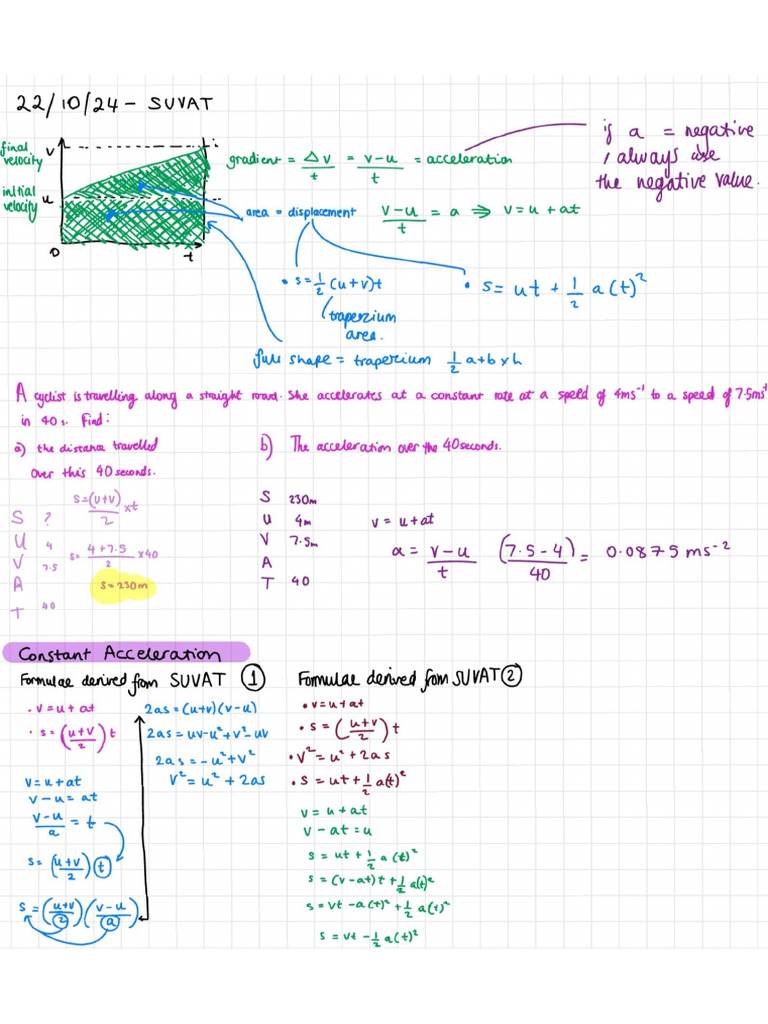 22/10/24 – SUVAT
final velocity
v
initial velocity
u
0
t
gradient = Δv/t = v-u/t = acceleration
if a = negative
, always use
the negative value.
area = displacement
v-u/t = a ⇒ v = u + at
• s = 1/2 (u+v)t
• s = ut + 1/2 a(t)²
(traperzium
area.
full shape = traperzium 1/2 a+b x h
A cyclist is travelling along a straight road. She accelerates at a constant rate at a speed of 4ms⁻¹ to a speed of 7.5ms⁻¹
in 40s. Find:
a) the distance travelled
over this 40 seconds.
b) The acceleration over the 40 seconds.
S ?
U 4
V 7.5
A
T 40
s = (u+v)/2 xt
s = 4+7.5/2 x40
s = 230m
S 230m
U 4m
V 7.5m
A
T 40
v = u+at
a = v-u/t (7.5-4)/40 = 0.0875ms⁻²
Constant Acceleration
Formulae derived from SUVAT ①
• v = u + at
• s = (u+v/2)t
v = u + at
v - u = at
v-u/a = t
s = (u+v/2)(t)
s = (u+v/2)(v-u/a)
2as = (u+v)(v-u)
2as = uv-u²+v²-uv
2as = -u²+v²
v² = u² + 2as
Formulae derived from SUVAT ②
• v = u + at
• s = (u+v/2)t
• v² = u² + 2as
• s = ut + 1/2 a(t)²
v = u + at
v - at = u
s = ut + 1/2 a(t)²
s = (v-at)t + 1/2 a(t)²
s = vt - a(t)² + 1/2 a(t)²
s = vt - 1/2 a(t)²